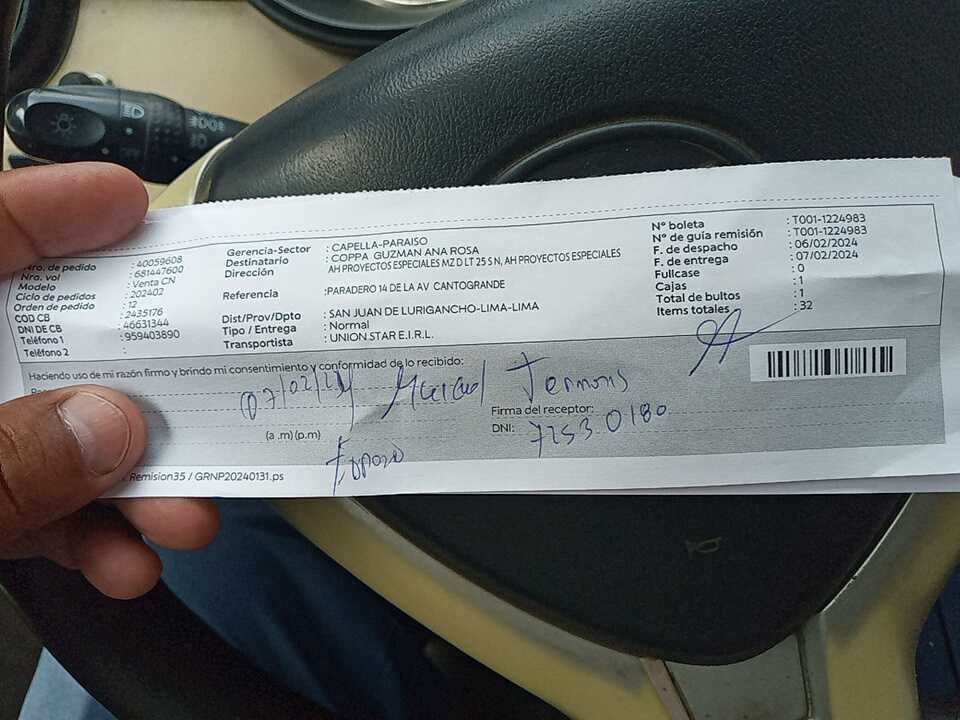 Nro. de pedido : 40059608
Nro. vol : 681447600
Modelo : Venta CN
Ciclo de pedidos : 202402
Orden de pedido : 12
COD CB : 2435176
DNI DE CB : 46631344
Teléfono 1 : 959403890
Teléfono 2 :
Gerencia-Sector : CAPELLA-PARAISO
Destinatario : COPPA GUZMAN ANA ROSA
Dirección AH PROYECTOS ESPECIALES MZ D LT 25 S N, AH PROYECTOS ESPECIALES
Referencia :PARADERO 14 DE LA AV CANTOGRANDE
Dist/Prov/Dpto : SAN JUAN DE LURIGANCHO-LIMA-LIMA
Tipo / Entrega : Normal
Transportista : UNION STAR E.I.R.L.
N° boleta : T001-1224983
N° de guía remisión : T001-1224983
F. de despacho : 06/02/2024
F. de entrega : 07/02/2024
Fullcase : 0
Cajas : 1
Total de bultos : 1
Items totales : 32
Haciendo uso de mi razón firmo y brindo mi consentimiento y conformidad de lo recibido:
07/02/24
Firma del receptor:
(a .m) (p.m)
DNI: 72530180
Remision35 / GRNP20240131.ps